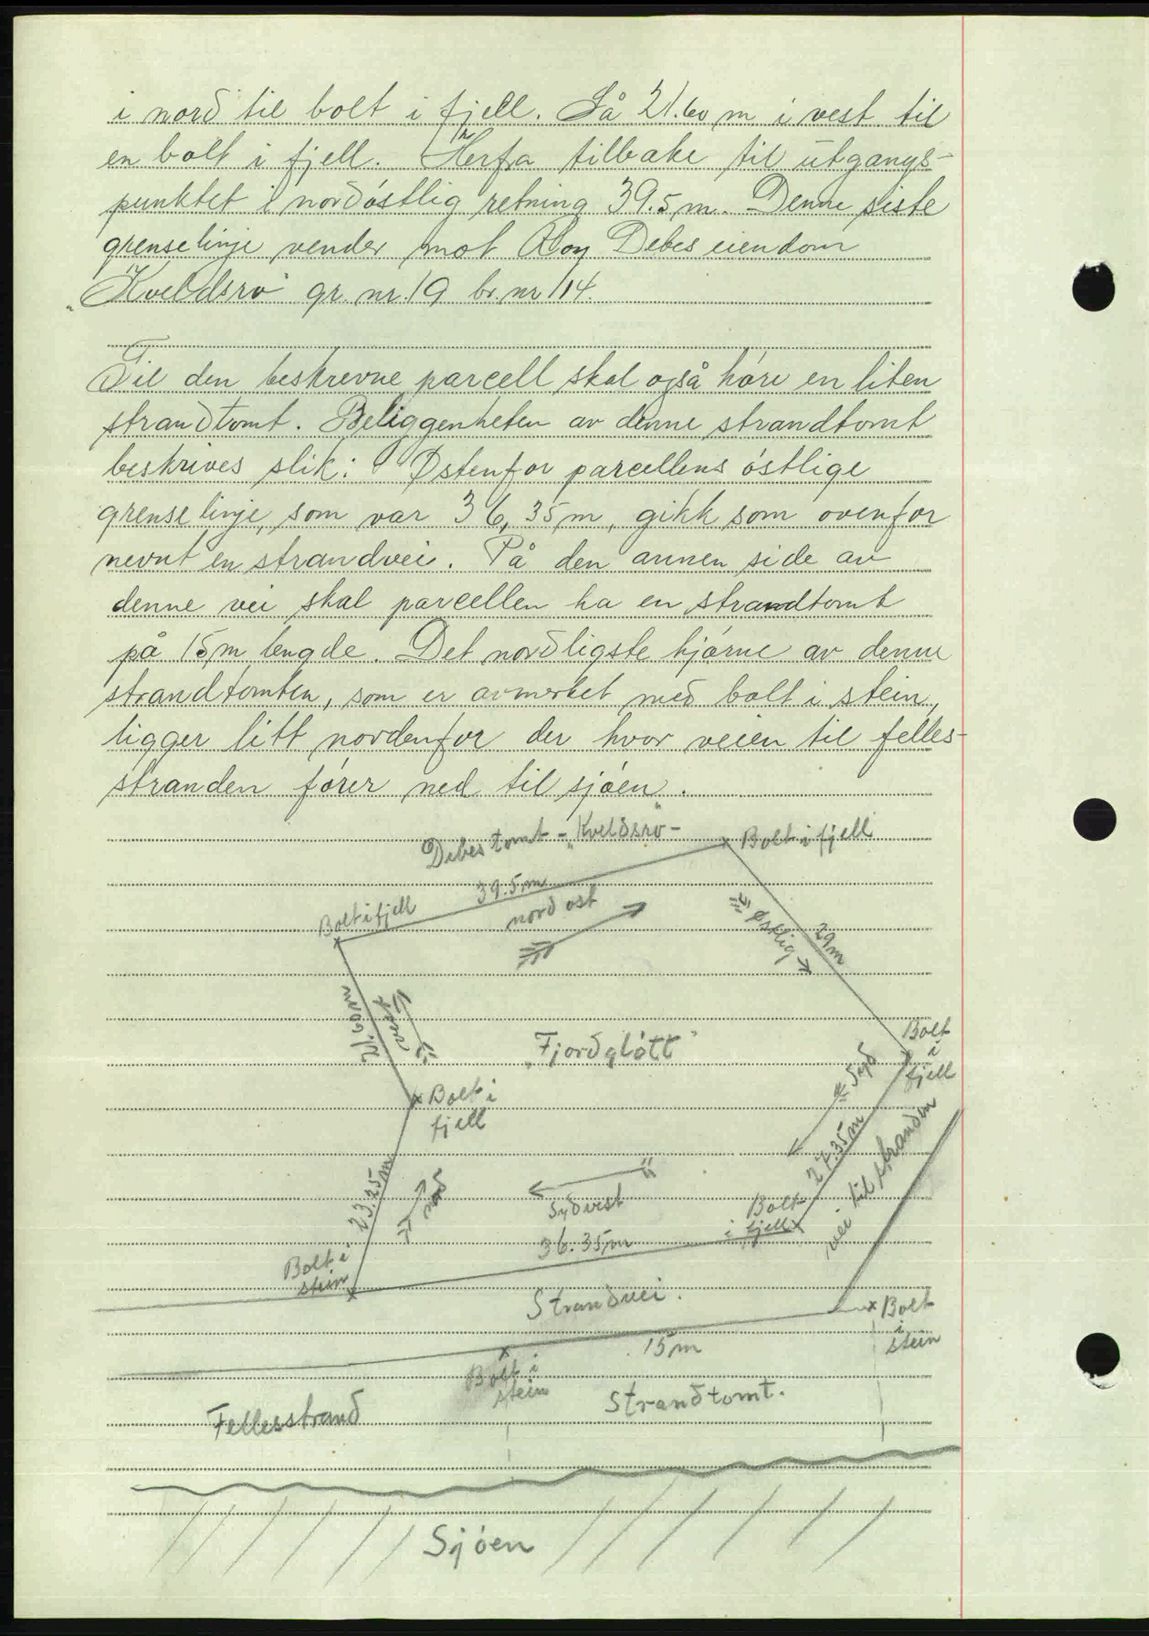 i nord til bolt i fjell. Så 21.60 m i vest til
en bolt i fjell. Herfra tilbake til utgangs-
punktet i nordöstlig retning 39.5 m. Denne siste
grenselinje vender mot Roy Debes eiendom
"Kveldsro" gr. nr. 19 br. nr 114.
Til den beskrevne parcell skal også höre en liten
strandtomt. Beliggenheten av denne strandtomt
beskrives slik: Östenfor parcellens östlige
grenselinje, som var 36,35 m, gikk som ovenfor
nevnt en strandvei. På den annen side av
denne vei skal parcellen ha en strandtomt
på 15 m lengde. Det nordligste hjörne av denne
strandtomten, som er avmerket med bolt i stein,
ligger litt nordenfor der hvor veien til felles-
stranden förer ned til sjöen.
Debes tomt - "Kveldsro" -
Bolt i fjell
39.5 m
nord ost
Bolt i fjell
Østlig
29 m
21.60 m
vest
"Fjordglött"
Bolt
i
fjell
Syd
Bolt i
fjell
27.35 m
vei til stranden
23.25 m
nord
Sydvest
36.35 m
Bolt
i fjell
Bolt i
stein
Strandvei.
Bolt
i
stein
15 m
Bolt i
stein
Strandtomt.
Fellesstrand
Sjöen